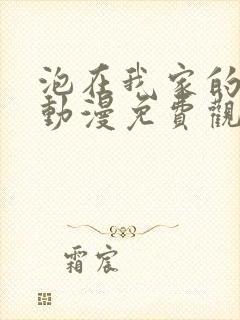 泡在我家的
動漫免費觀
霜宸